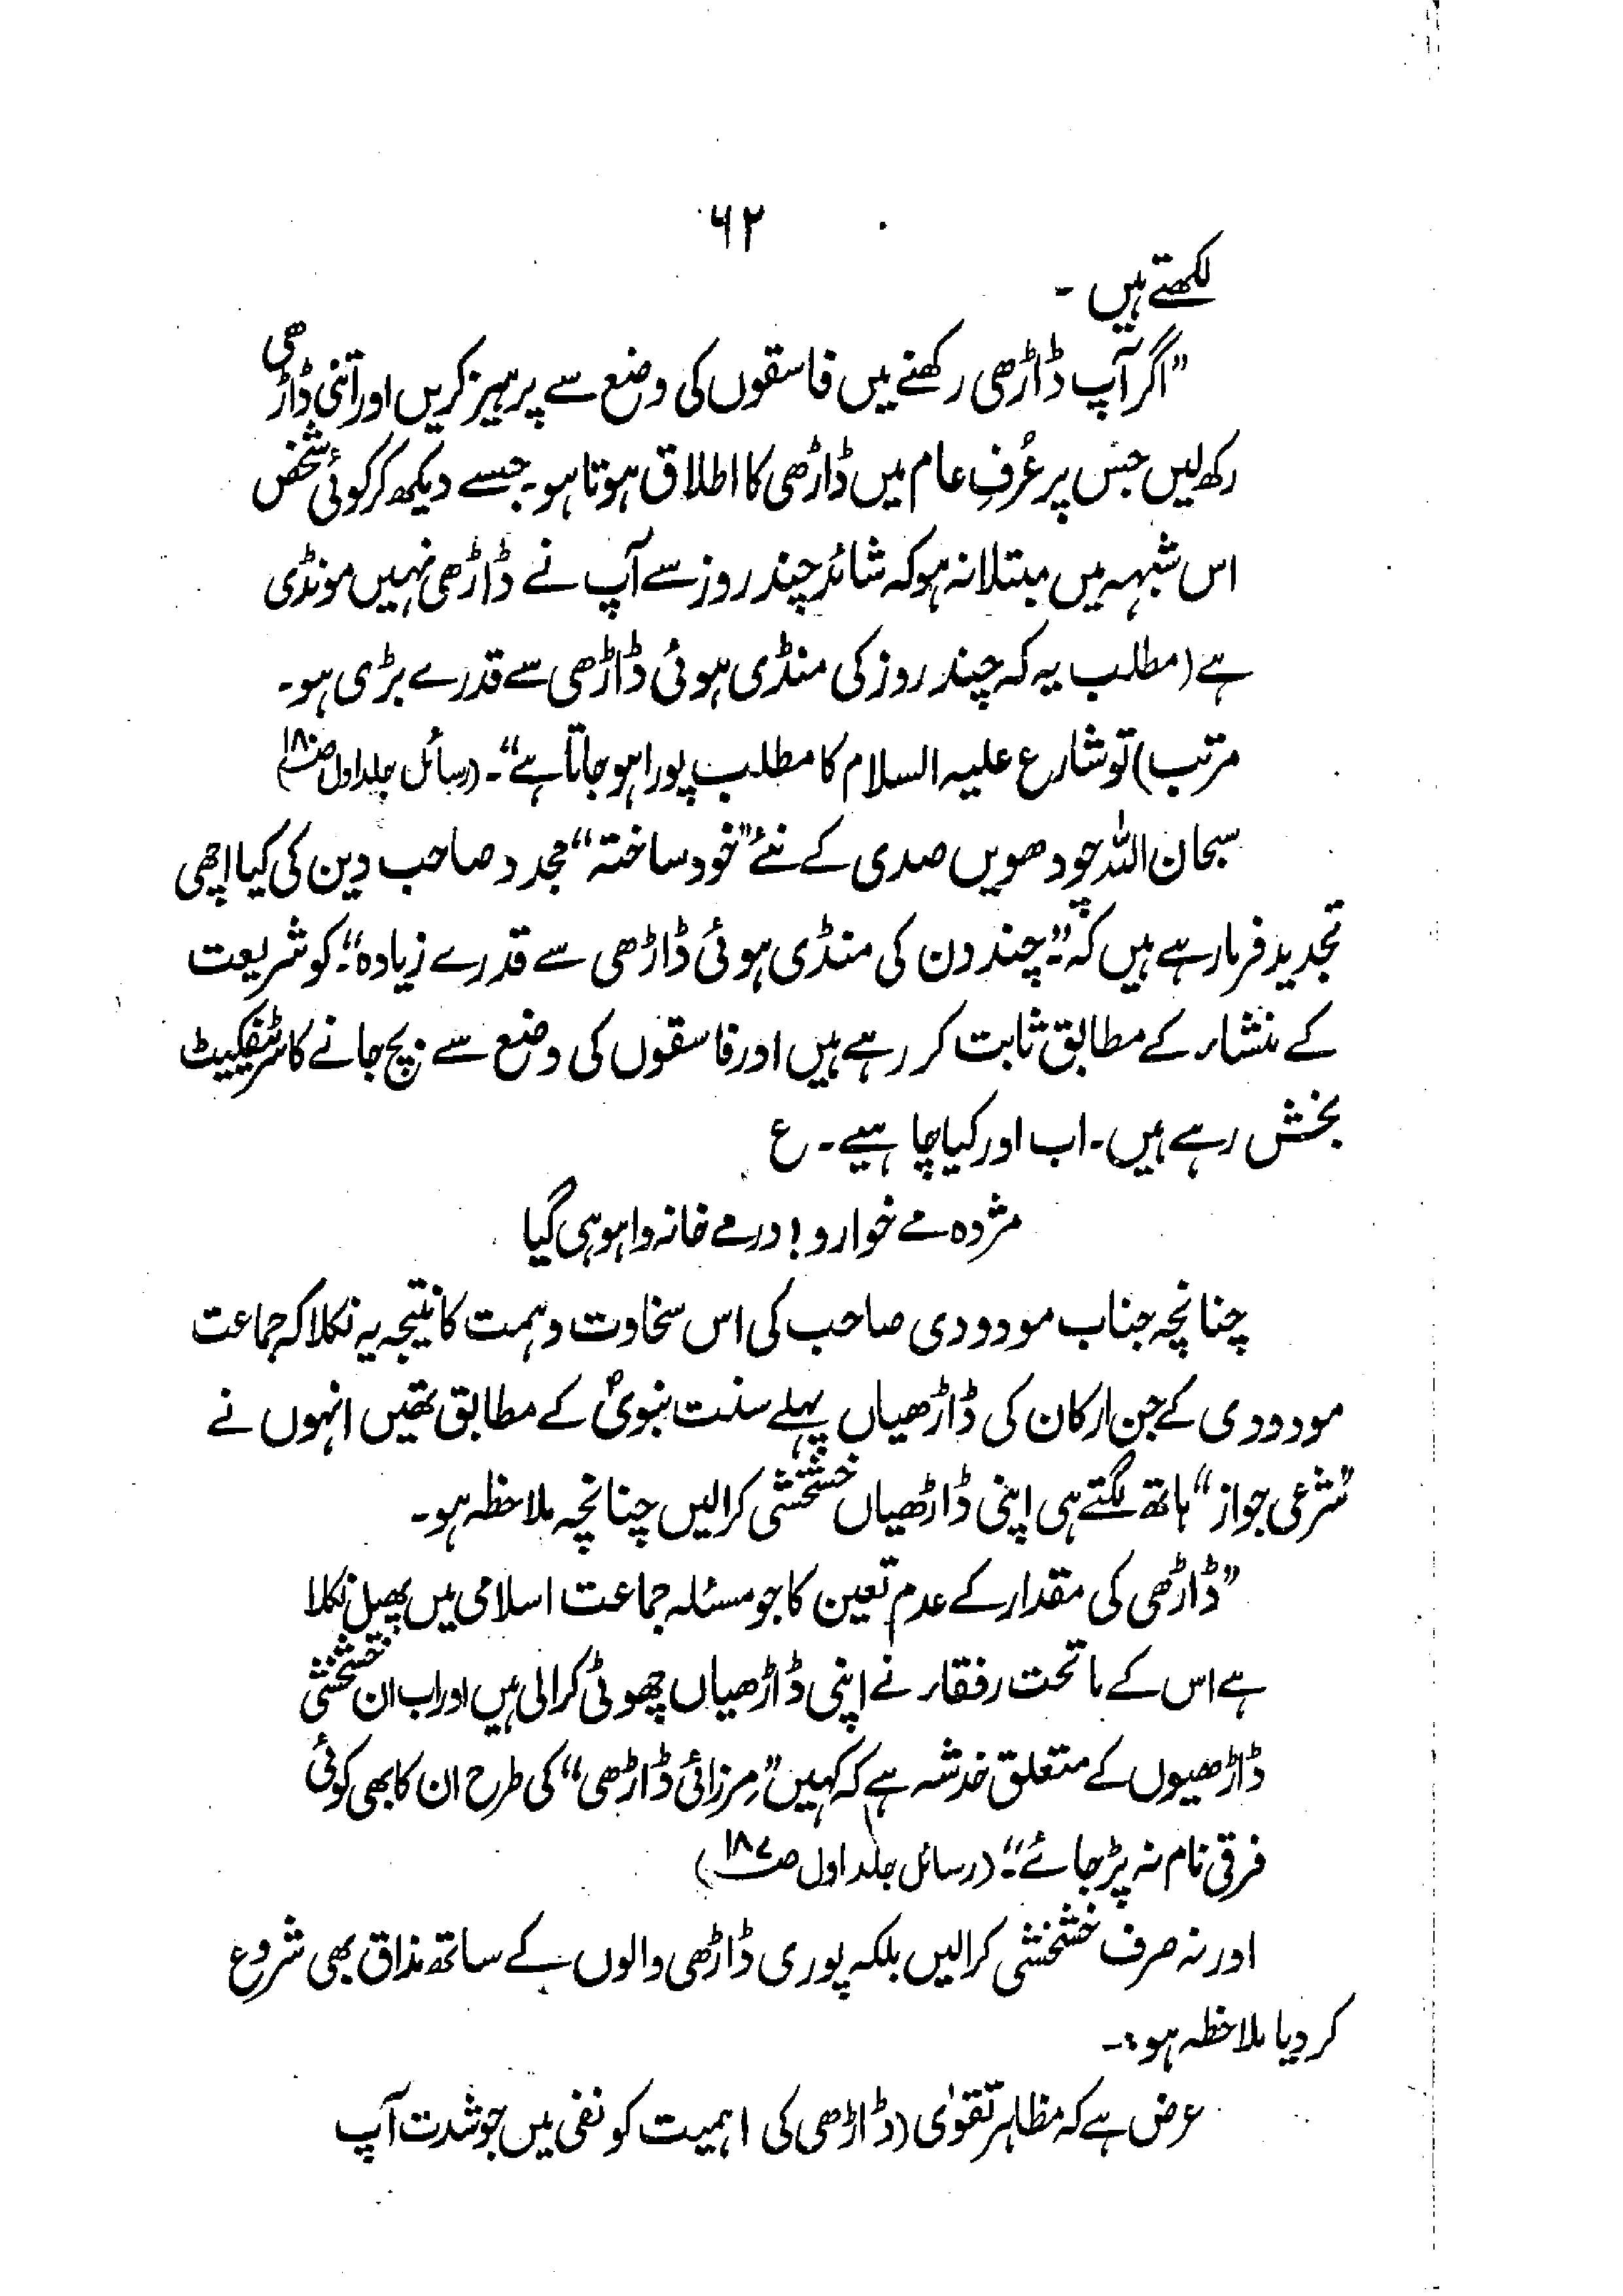 ۶۲
لکھتے ہیں ۔
"اگر آپ ڈاڑھی رکھنے میں فاسقوں کی وضع سے پرہیز کریں اور اتنی ڈاڑھی
رکھ لیں جس پر عُرفِ عام میں ڈاڑھی کا اطلاق ہوتا ہو۔ جسے دیکھ کر کوئی شخص
اس شبہہ میں مبتلا نہ ہو کہ شائد چند روز سے آپ نے ڈاڑھی نہیں مونڈی
ہے (مطلب یہ کہ چند روز کی منڈی ہوئی ڈاڑھی سے قدرے بڑی ہو۔
مرتب) تو شارع علیہ السلام کا مطلب پورا ہو جاتا ہے"۔ (رسائل جلد اول ص۱۸۰)
سبحان اللہ چودھویں صدی کے نئے "خود ساختہ" مجدد صاحب دین کی کیا اچھی
تجدید فرما رہے ہیں کہ "چند دن کی منڈی ہوئی ڈاڑھی سے قدرے زیادہ"۔ کو شریعت
کے منشاء کے مطابق ثابت کر رہے ہیں اور فاسقوں کی وضع سے بچ جانے کا سرٹیفکیٹ
بخش رہے ہیں۔ اب اور کیا چاہیے ۔ ع
مژدہ مے خوارو! در مے خانہ وا ہو ہی گیا
چنانچہ جناب مودودی صاحب کی اس سخاوت و ہمت کا نتیجہ یہ نکلا کہ جماعت
مودودی کے جن ارکان کی ڈاڑھیاں پہلے سنت نبویؐ کے مطابق تھیں انہوں نے
"شرعی جواز" ہاتھ لگتے ہی اپنی ڈاڑھیاں خشخشی کرالیں چنانچہ ملاحظہ ہو۔
"ڈاڑھی کی مقدار کے عدم تعین کا جو مسئلہ جماعت اسلامی میں پھیل نکلا
ہے اس کے ماتحت رفقاء نے اپنی ڈاڑھیاں چھوٹی کرالی ہیں اور اب ان خشخشی
ڈاڑھیوں کے متعلق خدشہ ہے کہ کہیں "مرزائی ڈاڑھی" کی طرح ان کا بھی کوئی
فرقی نام نہ پڑ جائے"۔ (رسائل جلد اول ص۱۸۷)
اور نہ صرف خشخشی کرالیں بلکہ پوری ڈاڑھی والوں کے ساتھ مذاق بھی شروع
کر دیا ملاحظہ ہو :۔
عرض ہے کہ مظاہر تقوٰی (ڈاڑھی کی اہمیت کو نفی میں جو شدت آپ